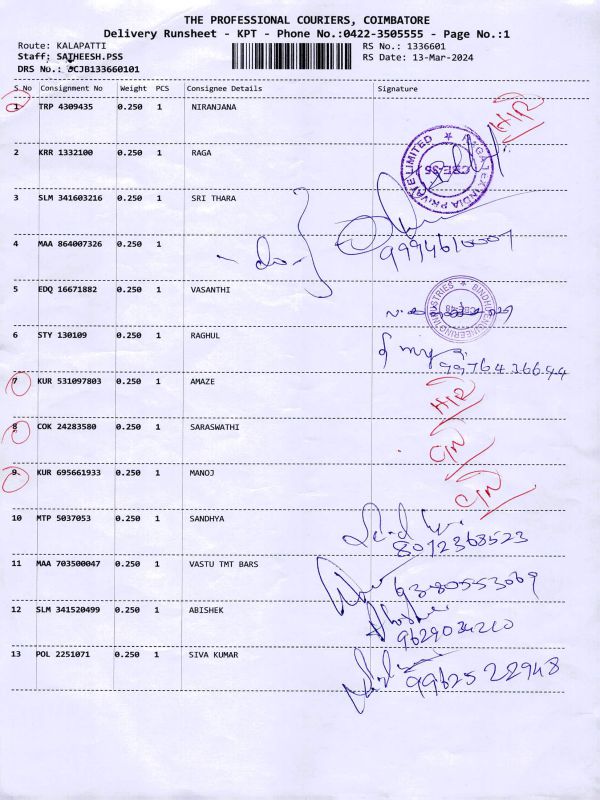 THE PROFESSIONAL COURIERS, COIMBATORE
Delivery Runsheet - KPT - Phone No.:0422-3505555 - Page No.:1
Route: KALAPATTI RS No.: 1336601
Staff: SATHEESH.PSS RS Date: 13-Mar-2024
DRS No.: CJB133660101
S No Consignment No Weight PCS Consignee Details Signature
1 TRP 4309435 0.250 1 NIRANJANA H/R
2 KRR 1332100 0.250 1 RAGA
INDIA PRIVATE LIMITED
3 SLM 341603216 0.250 1 SRI THARA
4 MAA 864007326 0.250 1 - do -
5 EDQ 16671882 0.250 1 VASANTHI
ENGINEERING INDUSTRIES
6 STY 130109 0.250 1 RAGHUL
9976436644
7 KUR 531097803 0.250 1 AMAZE H/R
8 COK 24283580 0.250 1 SARASWATHI C/N
9 KUR 695661933 0.250 1 MANOJ C/N
10 MTP 5037053 0.250 1 SANDHYA
8012368523
11 MAA 703500047 0.250 1 VASTU TMT BARS
12 SLM 341520499 0.250 1 ABISHEK
9629034210
13 POL 2251071 0.250 1 SIVA KUMAR
9962522948